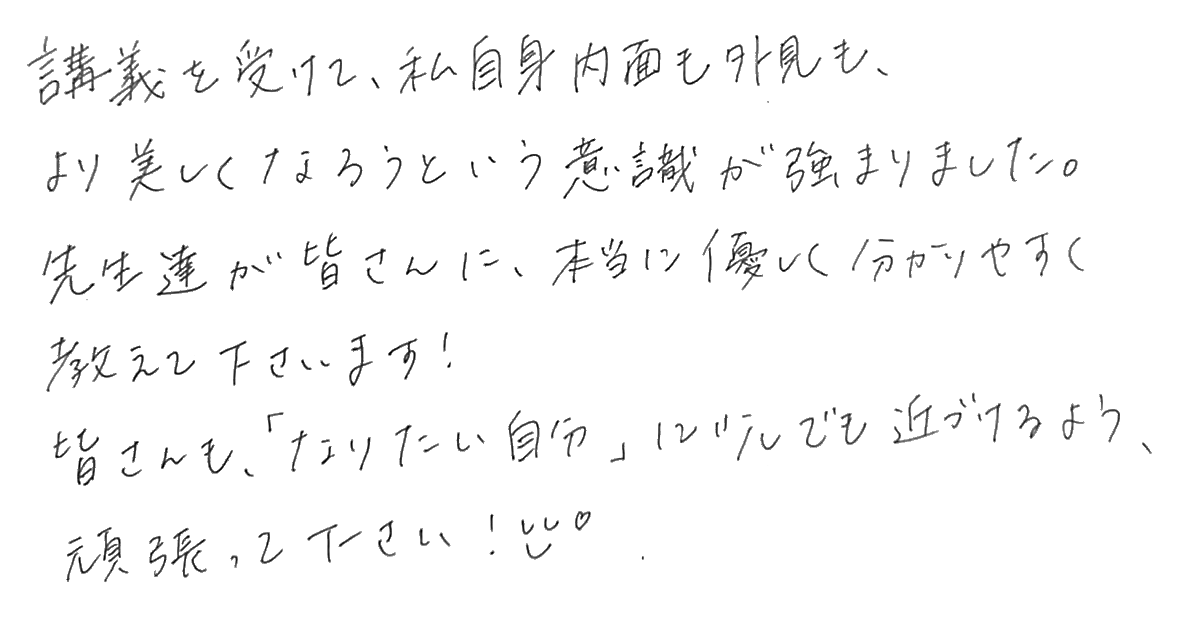 講義を受けて、私自身内面も外見も、
より美しくなろうという意識が強まりました。
先生達が皆さんに、本当に優しく分かりやすく
教えて下さいます!
皆さんも、「なりたい自分」に少しでも近づけるよう、
頑張って下さい!